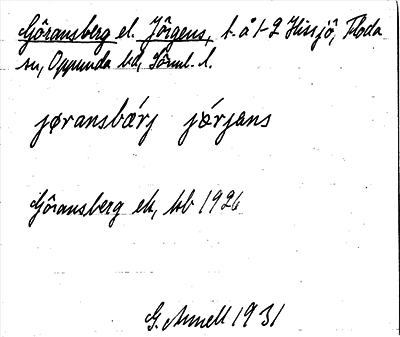 Göransberg el. Jörgens, t. å 1-2 Hissjö, Floda
sn, Oppunda hd, Söml. l.
jøransbǽrj jǿrjans
Göransberg ek, kb 1926
G. Annell 1931